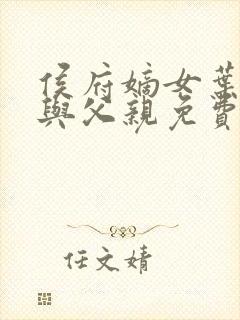 侯府嫡女葉
與父親免費
任文婧